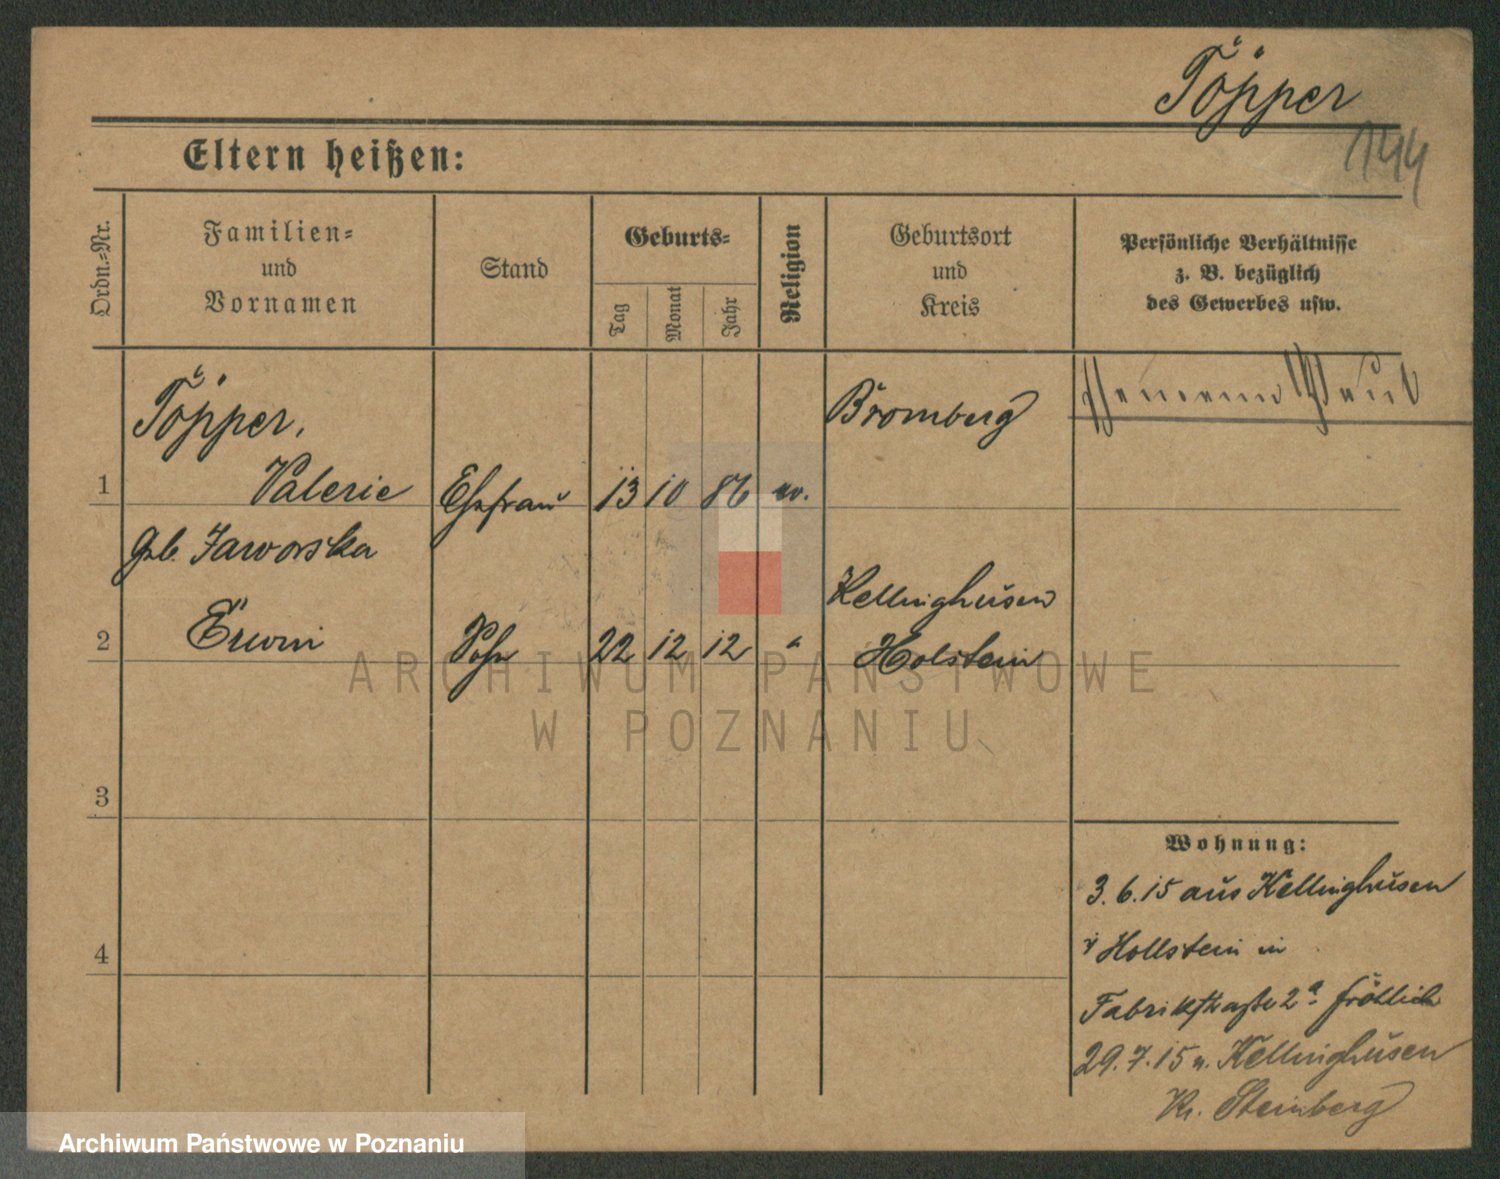 Töpper
144
Eltern heißen:
Ordn.-Nr.
Familien-
und
Vornamen
Stand
Geburts-
Tag
Monat
Jahr
Religion
Geburtsort
und
Kreis
Persönliche Verhältnisse
z. B. bezüglich
des Gewerbes usw.
Töpper,
Bromberg
1 Valerie Ehefrau 13 10 86 ev.
geb. Jaworska
Kellinghusen
2 Erwin Sohn 22 12 12 " Holstein
3
4
Wohnung:
3.6.15 aus Kellinghusen
i/ Hollstein in
Fabrikstraße 2a Fröhlich
29.7.15 n. Kellinghusen
Kr. Steinberg
ARCHIWUM PAŃSTWOWE
W POZNANIU
Archiwum Państwowe w Poznaniu